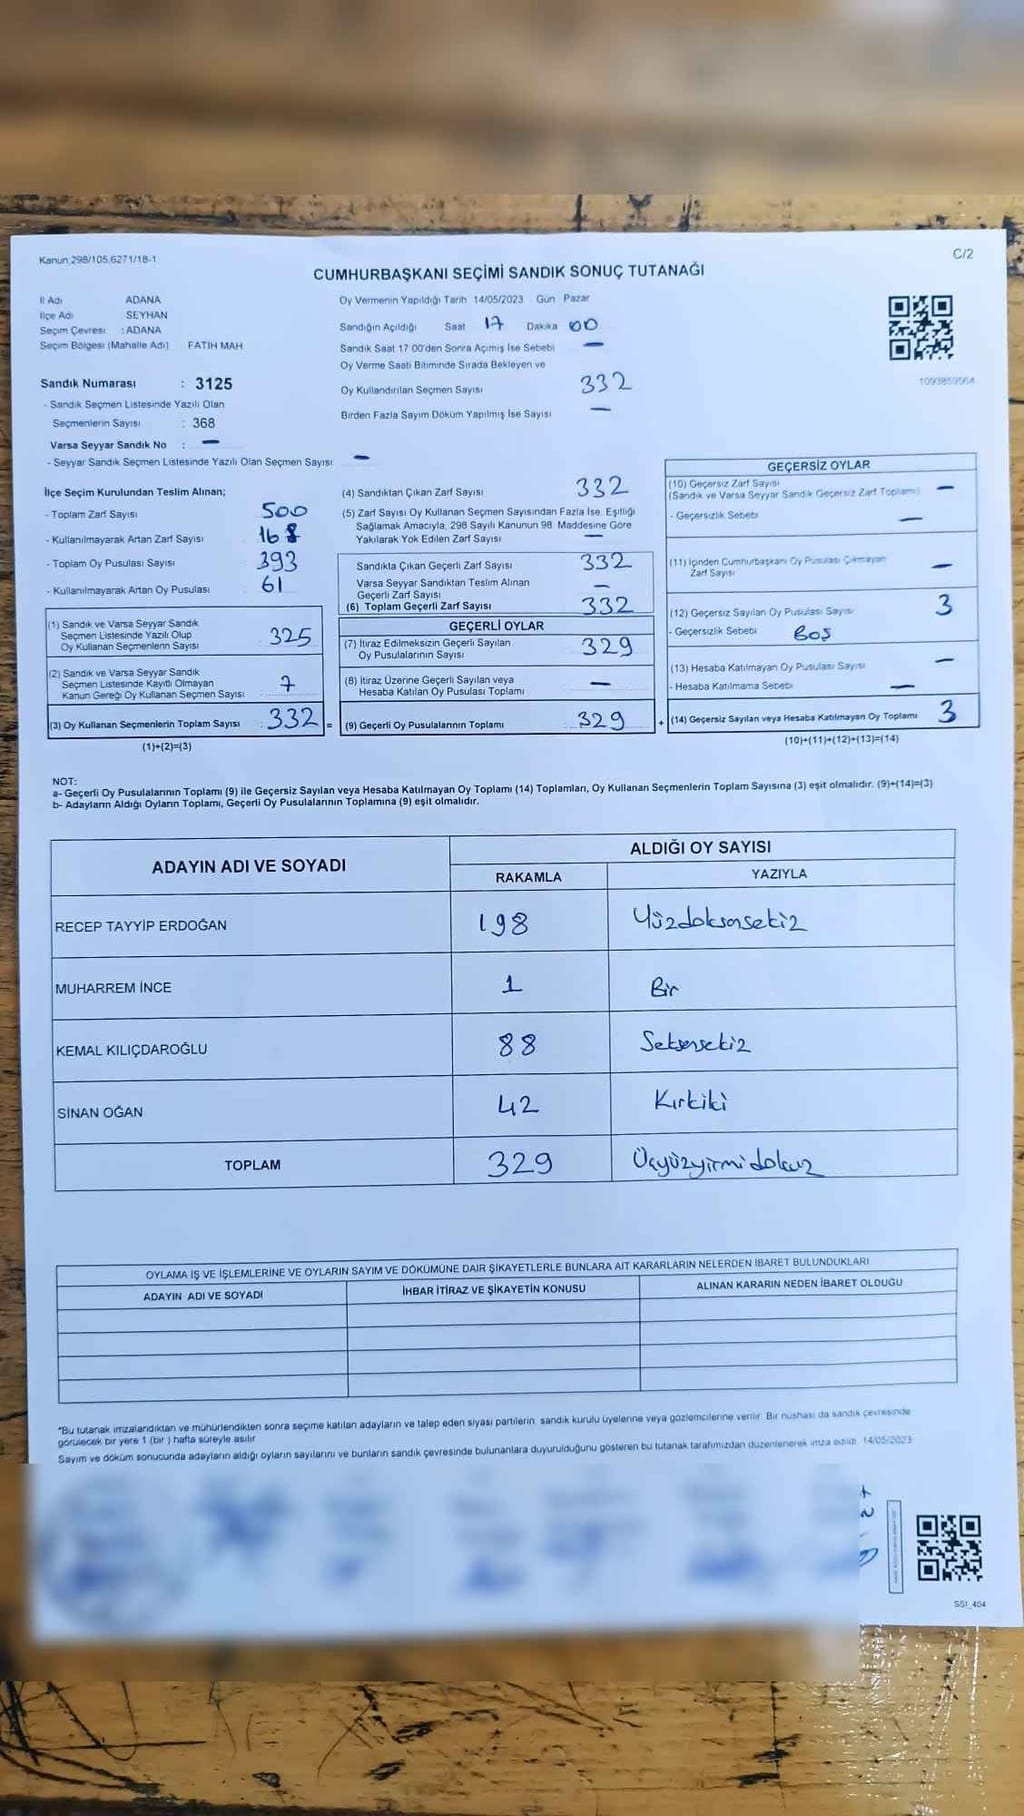 Kanun.298/105.6271/18-1
C/2
CUMHURBAŞKANI SEÇİMİ SANDIK SONUÇ TUTANAĞI
İl Adı ADANA
İlçe Adı SEYHAN
Seçim Çevresi : ADANA
Seçim Bölgesi (Mahalle Adı) FATİH MAH.
Sandık Numarası : 3125
- Sandık Seçmen Listesinde Yazılı Olan
Seçmenlerin Sayısı : 368
Varsa Seyyar Sandık No : —
- Seyyar Sandık Seçmen Listesinde Yazılı Olan Seçmen Sayısı —
Oy Vermenin Yapıldığı Tarih 14/05/2023 Gün Pazar
Sandığın Açıldığı Saat 17 Dakika 00
Sandık Saat 17 00'den Sonra Açımış İse Sebebi —
Oy Verme Saati Bitiminde Sırada Bekleyen ve
Oy Kullandırılan Seçmen Sayısı 332
Birden Fazla Sayım Döküm Yapılmış İse Sayısı —
1093859564
İlçe Seçim Kurulundan Teslim Alınan;
- Toplam Zarf Sayısı 500
- Kullanılmayarak Artan Zarf Sayısı 168
- Toplam Oy Pusulası Sayısı 393
- Kullanılmayarak Artan Oy Pusulası 61
(1) Sandık ve Varsa Seyyar Sandık
Seçmen Listesinde Yazılı Olup
Oy Kullanan Seçmenlerin Sayısı 325
(2) Sandık ve Varsa Seyyar Sandık
Seçmen Listesinde Kayıtlı Olmayan
Kanun Gereği Oy Kullanan Seçmen Sayısı 7
(3) Oy Kullanan Seçmenlerin Toplam Sayısı : 332 =
(1)+(2)=(3)
(4) Sandıktan Çıkan Zarf Sayısı 332
(5) Zarf Sayısı Oy Kullanan Seçmen Sayısından Fazla İse, Eşitliği
Sağlamak Amacıyla, 298 Sayılı Kanunun 98. Maddesine Göre
Yakılarak Yok Edilen Zarf Sayısı —
Sandıkta Çıkan Geçerli Zarf Sayısı 332
Varsa Seyyar Sandıktan Teslim Alınan
Geçerli Zarf Sayısı —
(6) Toplam Geçerli Zarf Sayısı 332
GEÇERLİ OYLAR
(7) İtiraz Edilmeksizin Geçerli Sayılan
Oy Pusulalarının Sayısı 329
(8) İtiraz Üzerine Geçerli Sayılan veya
Hesaba Katılan Oy Pusulası Toplamı —
(9) Geçerli Oy Pusulalarının Toplamı 329 +
GEÇERSİZ OYLAR
(10) Geçersiz Zarf Sayısı
(Sandık ve Varsa Seyyar Sandık Geçersiz Zarf Toplamı) —
- Geçersizlik Sebebi —
(11) İçinden Cumhurbaşkanı Oy Pusulası Çıkmayan
Zarf Sayısı —
(12) Geçersiz Sayılan Oy Pusulası Sayısı 3
- Geçersizlik Sebebi BOŞ
(13) Hesaba Katılmayan Oy Pusulası Sayısı —
- Hesaba Katılmama Sebebi —
(14) Geçersiz Sayılan veya Hesaba Katılmayan Oy Toplamı 3
(10)+(11)+(12)+(13)=(14)
NOT:
a- Geçerli Oy Pusulalarının Toplamı (9) ile Geçersiz Sayılan veya Hesaba Katılmayan Oy Toplamı (14) Toplamları, Oy Kullanan Seçmenlerin Toplam Sayısına (3) eşit olmalıdır. (9)+(14)=(3)
b- Adayların Aldığı Oyların Toplamı, Geçerli Oy Pusulalarının Toplamına (9) eşit olmalıdır.
ADAYIN ADI VE SOYADI ALDIĞI OY SAYISI
RAKAMLA YAZIYLA
RECEP TAYYİP ERDOĞAN 198 Yüzdoksansekiz
MUHARREM İNCE 1 Bir
KEMAL KILIÇDAROĞLU 88 Seksensekiz
SİNAN OĞAN 42 Kırkiki
TOPLAM 329 Üçyüzyirmidokuz
OYLAMA İŞ VE İŞLEMLERİNE VE OYLARIN SAYIM VE DÖKÜMÜNE DAİR ŞİKAYETLERLE BUNLARA AİT KARARLARIN NELERDEN İBARET BULUNDUKLARI
ADAYIN ADI VE SOYADI İHBAR İTİRAZ VE ŞİKAYETİN KONUSU ALINAN KARARIN NEDEN İBARET OLDUĞU
*Bu tutanak imzalandıktan ve mühürlendikten sonra seçime katılan adayların ve talep eden siyasi partilerin sandık kurulu üyelerine veya gözlemcilerine verilir. Bir nüshası da sandık çevresinde
görülecek bir yere 1 (bir) hafta süreyle asılır
Sayım ve döküm sonucunda adayların aldığı oyların sayılarını ve bunların sandık çevresinde bulunanlara duyurulduğunu gösteren bu tutanak tarafımızdan düzenlenerek imza edildi. 14/05/2023
SSI_404